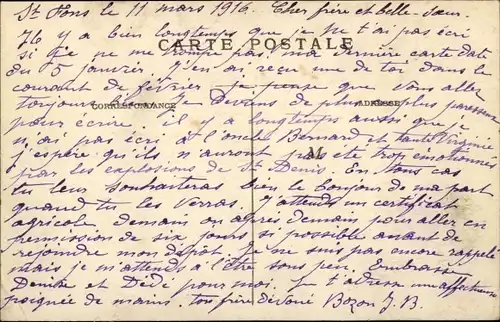 St Fons le 11 mars 1916. Cher frère et belle-sœur.
Il y a bien longtemps que je ne t'ai pas écri
CARTE POSTALE
si je ne me trompe pas, ma dernière carte date
du 5 janvier. J'en ai reçu une de toi dans le
courant de février, je pense que vous allez
toujours je deviens de plus plus paresseux
CORRESPONDANCE
ADRESSE
pour écrire. il y a longtemps aussi que je
n'ai pas écri à l'oncle Bernard et tante Virginie
M
j'espère qu'ils n'auront pas été trop émotionnés
par les explosions de St Denis. En tous cas
tu leur souhaiteras bien le bonjour de ma part
quand tu les verras. J'attends un certificat
agricole demain ou après demain pour aller en
permission de six jours si possible avant de
rejoindre mon dépôt. Je ne suis pas encore rappelé
mais je m'attends à l'être sous peu. Embrasse
Denise et Dédé pour moi. Je t'adresse une affectueuse
poignée de mains. ton frère dévoué Bozon J.B.